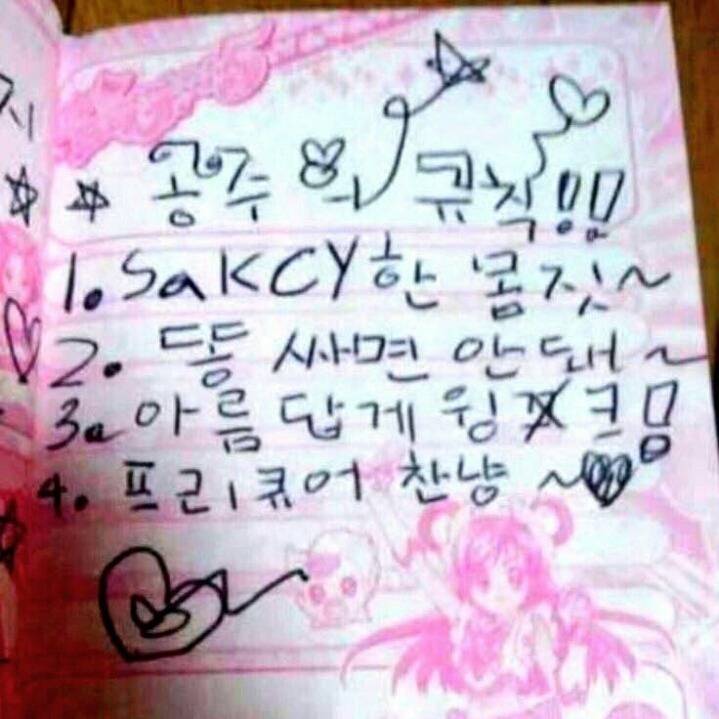 ☆ 공주의 규칙!!
1. SaKCY한 몸짓~
2. 똥 싸면 안 돼~
3. 아름답게 윙크!
4. 프리큐어 찬냥~♥